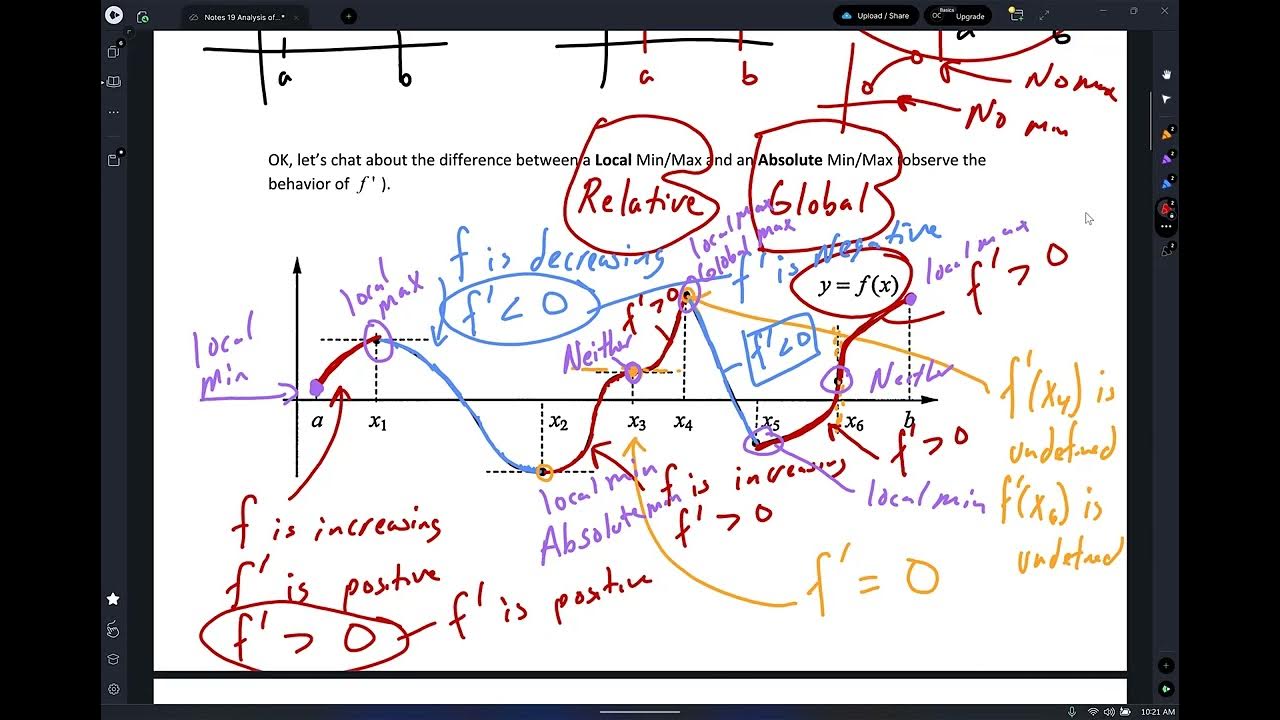 Notes 19 Analysis of...*
Upload / Share
OC
Basics
Upgrade
a
b
a
b
a
b
No max
No min
OK, let's chat about the difference between a Local Min/Max and an Absolute Min/Max (observe the
behavior of f').
Relative
Global
f is decreasing
f' < 0
local max
Global max
f' is Negative
y = f(x)
local max
f' > 0
local
max
local
min
f' > 0
Neither
f' < 0
Neither
a
x1
x2
x3
x4
x5
x6
b
f'(x4) is
undefined
f' > 0
local min
Absolute min
f is increasing
f' > 0
local min
f'(x6) is
undefined
f is increasing
f' is positive
f' > 0
f' is positive
f' = 0
10:21 AM